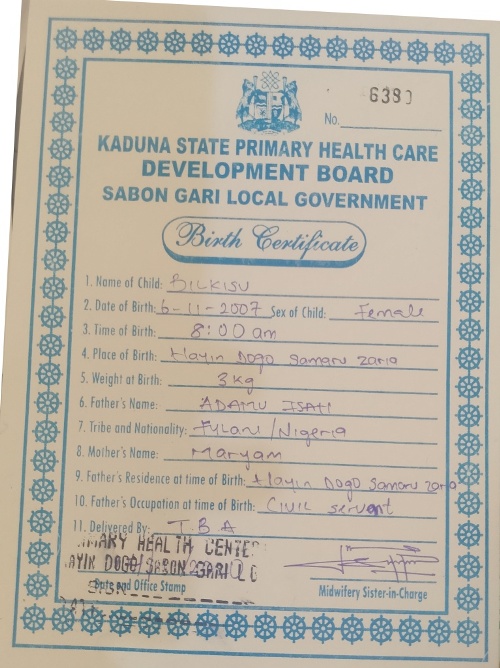 6390
No.
KADUNA STATE PRIMARY HEALTH CARE
DEVELOPMENT BOARD
SABON GARI LOCAL GOVERNMENT
Birth Certificate
1. Name of Child: BILKISU
2. Date of Birth: 6-11-2007 Sex of Child: Female
3. Time of Birth: 8:00 am
4. Place of Birth: Hayin Dogo Samaru Zaria
5. Weight at Birth: 3kg
6. Father's Name: ADAMU
7. Tribe and Nationality: Fulani/Nigeria
8. Mother's Name: Maryam
9. Father's Residence at time of Birth: Hayin Dogo Samaru Zaria
10. Father's Occupation at time of Birth: Civil servant
11. Delivered By: T.B.A
MARY HEALTH CENTE
AYIN DOGO/SABON GARI LG
Date and Office Stamp
Midwifery Sister-in-Charge